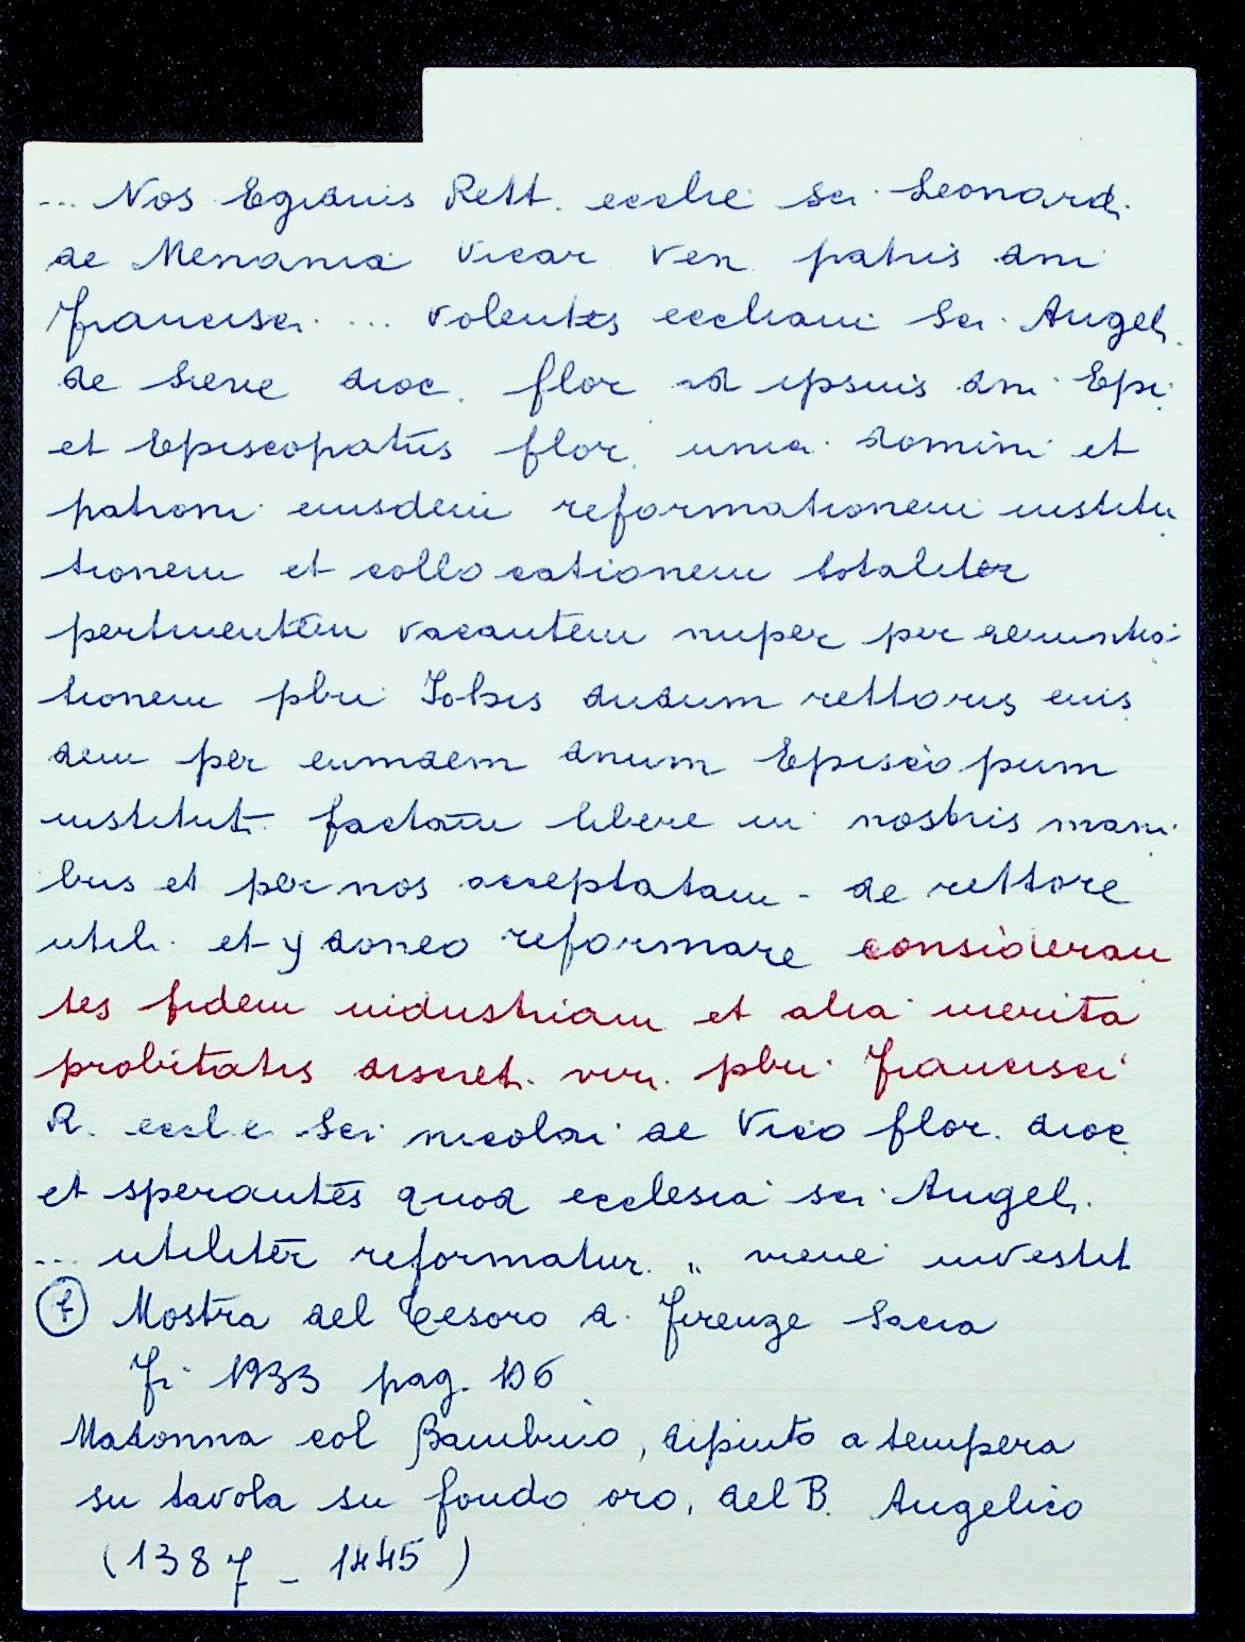 ... Nos Egidius Rett. ecclie sci Leonardi
de Menania vicar ven patris dni
Francisci ... volentes eccliam Sci Angeli
de Sieve dioc. flor ad ipsius dni Epi
et Episcopatus flor. domini et
patroni eiusdem reformationem institu
tionem et collocationem totaliter
pertinentem vacantem nuper per renuntia
tionem pbri Iohis dudum rettoris eius
dem per eumdem dnum Episcopum
institut. factam libere in nostris mani
bus et per nos acceptatam - de rettore
utili et ydoneo reformare consideran
tes fidem industriam et alia merita
probitatis discret. viri pbri Francisci
R. eccl.e Sci nicolai de Vico flor. dioc
et sperantes quod ecclesia sci Angeli
... utiliter reformatur " viene investit
⑦ Mostra del Tesoro di Firenze Sacra
Fi 1933 pag. 106
Madonna col Bambino, dipinto a tempera
su tavola su fondo oro, del B. Angelico
(1387 - 1445)